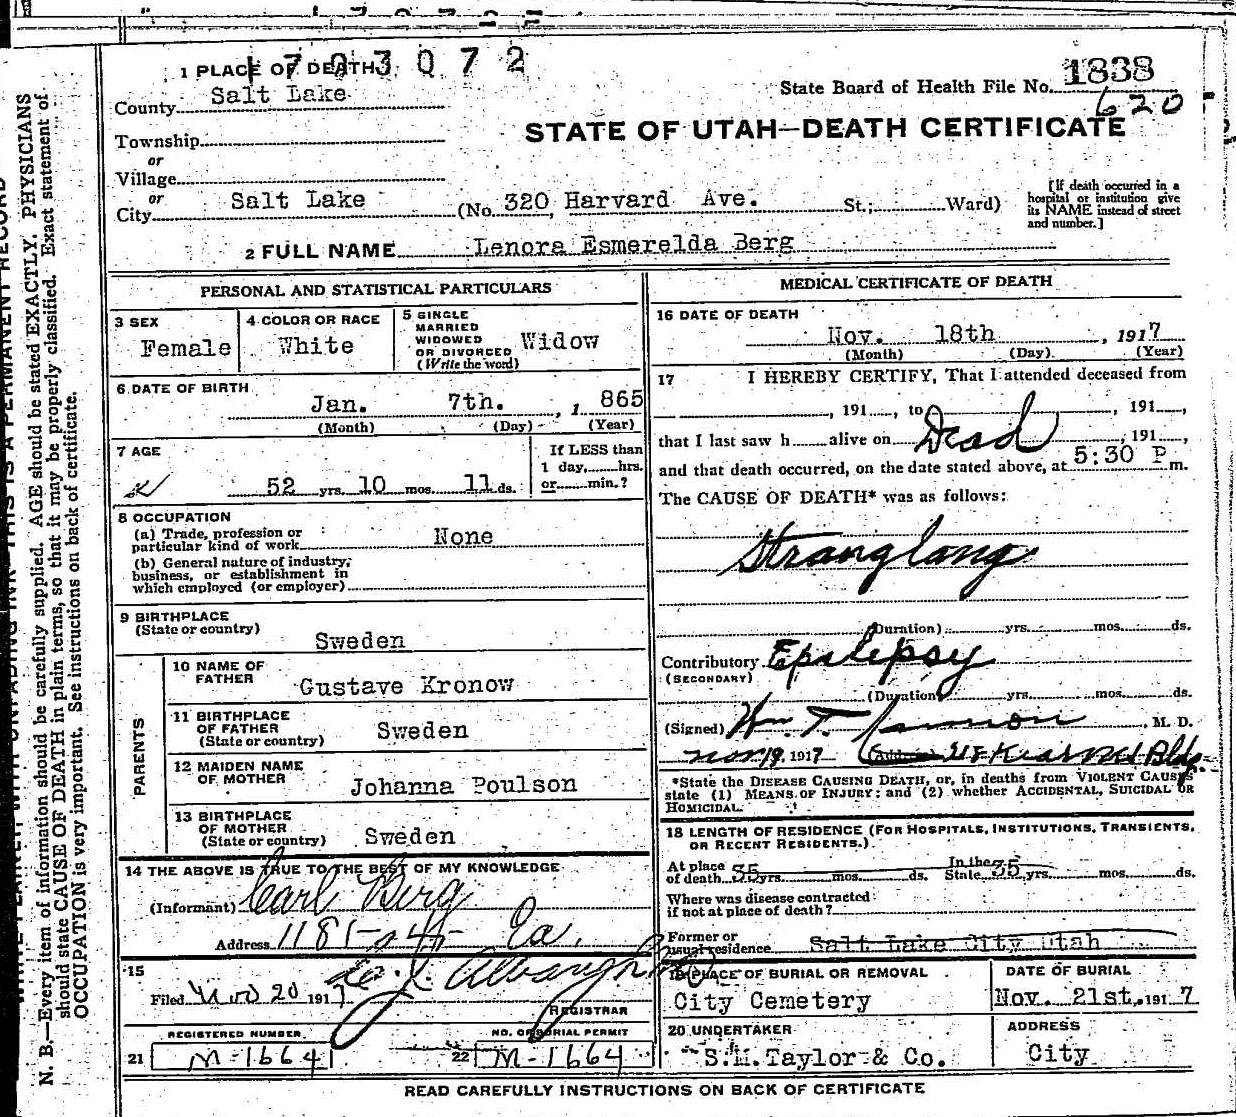 1 PLACE OF DEATH
1703072
County Salt Lake
State Board of Health File No. 1838
620
Township
or
STATE OF UTAH—DEATH CERTIFICATE
Village
or
City Salt Lake (No. 320 Harvard Ave. St.; Ward)
[If death occurred in a
hospital or institution give
its NAME instead of street
and number.]
2 FULL NAME Lenora Esmerelda Berg
PERSONAL AND STATISTICAL PARTICULARS
3 SEX
Female
4 COLOR OR RACE
White
5 SINGLE
MARRIED
WIDOWED
OR DIVORCED
(Write the word)
Widow
6 DATE OF BIRTH
Jan. 7th. , 1 865
(Month) (Day) (Year)
7 AGE
52 yrs. 10 mos. 11 ds.
If LESS than
1 day, hrs.
or min.?
8 OCCUPATION
(a) Trade, profession or
particular kind of work None
(b) General nature of industry,
business, or establishment in
which employed (or employer)
9 BIRTHPLACE
(State or country)
Sweden
PARENTS
10 NAME OF
FATHER
Gustave Kronow
11 BIRTHPLACE
OF FATHER
(State or country)
Sweden
12 MAIDEN NAME
OF MOTHER
Johanna Poulson
13 BIRTHPLACE
OF MOTHER
(State or country)
Sweden
14 THE ABOVE IS TRUE TO THE BEST OF MY KNOWLEDGE
(Informant) Carl Berg
Address 1181-
15
Filed Nov 20 1917
REGISTRAR
REGISTERED NUMBER
21 M-1664
NO. OF BURIAL PERMIT
22 M-1664
MEDICAL CERTIFICATE OF DEATH
16 DATE OF DEATH
Nov. 18th , 1917
(Month) (Day) (Year)
17 I HEREBY CERTIFY, That I attended deceased from
, 191 , to , 191 ,
that I last saw h alive on Dead , 191 ,
and that death occurred, on the date stated above, at 5:30 P m.
The CAUSE OF DEATH* was as follows:
(Duration) yrs. mos. ds.
Contributory Epilepsy
(SECONDARY)
(Duration) yrs. mos. ds.
(Signed) Wm. T. , M. D.
Nov 19, 1917 (Address) Kearns Bldg.
*State the DISEASE CAUSING DEATH, or, in deaths from VIOLENT CAUSES
state (1) MEANS OF INJURY; and (2) whether ACCIDENTAL, SUICIDAL OR
HOMICIDAL.
18 LENGTH OF RESIDENCE (FOR HOSPITALS, INSTITUTIONS, TRANSIENTS,
OR RECENT RESIDENTS.)
At place
of death 35 yrs. mos. ds.
In the
State 35 yrs. mos. ds.
Where was disease contracted
if not at place of death?
Former or
usual residence Salt Lake City Utah
19 PLACE OF BURIAL OR REMOVAL
City Cemetery
DATE OF BURIAL
Nov. 21st, 1917
20 UNDERTAKER
S.M. Taylor & Co.
ADDRESS
City
READ CAREFULLY INSTRUCTIONS ON BACK OF CERTIFICATE
N. B.—Every item of information should be carefully supplied. AGE should be stated EXACTLY. PHYSICIANS
should state CAUSE OF DEATH in plain terms, so that it may be properly classified. Exact statement of
OCCUPATION is very important. See instructions on back of certificate.